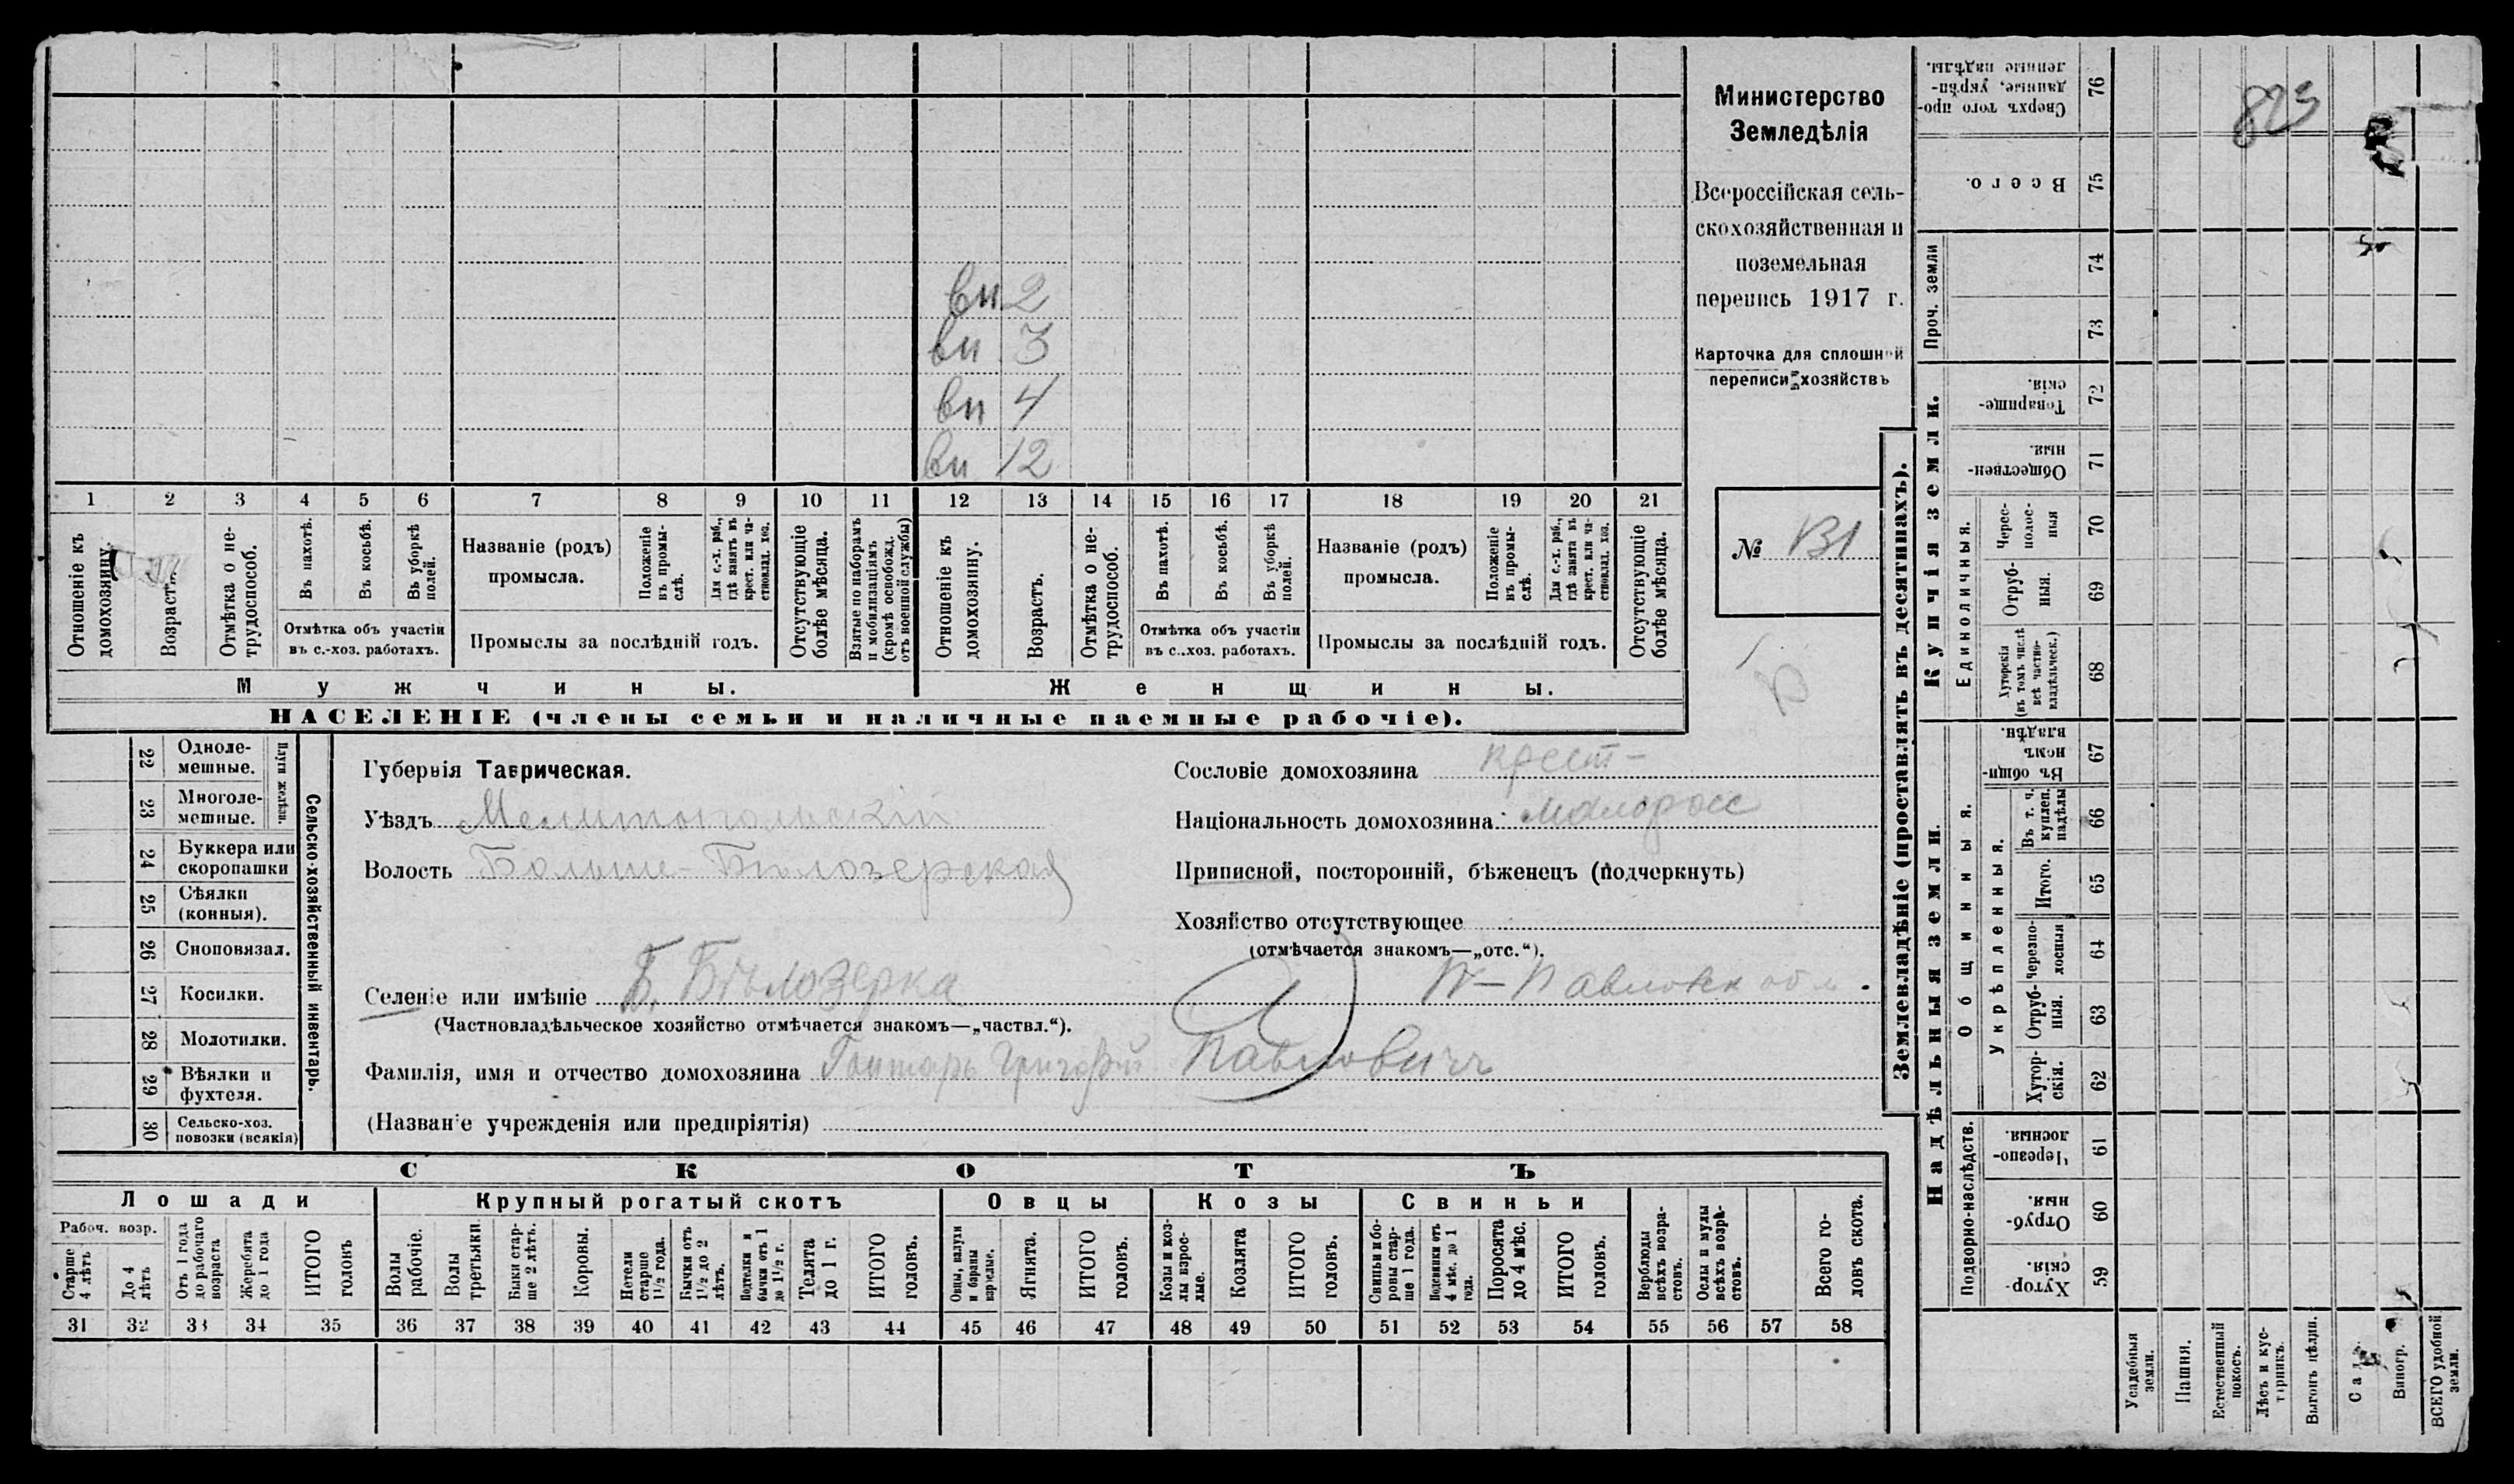 вн 2
вн 3
вн 4
вн 12
1 2 3 4 5 6 7 8 9 10 11 12 13 14 15 16 17 18 19 20 21
Отношеніе къ домохозяину.
Возрастъ.
Отмѣтка о не-трудоспособ.
Въ пахотѣ.
Въ косьбѣ.
Въ уборкѣ полей.
Отмѣтка объ участіи
въ с.-хоз. работахъ.
Названіе (родъ)
промысла.
Положеніе въ промы-слѣ.
Для с.-х. раб., гдѣ занятъ въ крест. или ча-стновлад. хоз.
Промыслы за послѣдній годъ.
Отсутствующіе болѣе мѣсяца.
Взятые по наборамъ и мобилизаціямъ (кромѣ освобожд. отъ военной службы)
Отношеніе къ домохозяину.
Возрастъ.
Отмѣтка о не-трудоспособ.
Въ пахотѣ.
Въ косьбѣ.
Въ уборкѣ полей.
Отмѣтка объ участіи
въ с.-хоз. работахъ.
Названіе (родъ)
промысла.
Положеніе въ промы-слѣ.
Для с.-х. раб., гдѣ занята въ крест. или ча-стновлад. хоз.
Промыслы за послѣдній годъ.
Отсутствующіе болѣе мѣсяца.
Мужчины.
Женщины.
НАСЕЛЕНІЕ (члены семьи и наличные наемные рабочіе).
Министерство
Земледѣлія
Всероссійская сель-
скохозяйственная и
поземельная
перепись 1917 г.
Карточка для сплошной
переписи хозяйствъ
№ 131
22 Одноле-мешные.
23 Многоле-мешные.
Плуги желѣзн.
24 Буккера или скоропашки
25 Сѣялки (конныя).
26 Сноповязал.
27 Косилки.
28 Молотилки.
29 Вѣялки и фухтеля.
30 Сельско-хоз. повозки (всякія)
Сельско-хозяйственный инвентарь.
Губернія Таврическая.
Уѣздъ Мелитопольскій
Волость Больше-Бѣлозерская
Селеніе или имѣніе Б. Бѣлозерка
(Частновладѣльческое хозяйство отмѣчается знакомъ—„частвл.“).
Фамилія, имя и отчество домохозяина Гонтарь Григорій Павловичъ
(Названіе учрежденія или предпріятія)
Сословіе домохозяина крест-
Національность домохозяина: малоросс
Приписной, посторонній, бѣженецъ (подчеркнуть)
Хозяйство отсутствующее
(отмѣчается знакомъ—„отс.“).
СКОТЪ
Лошади
Рабоч. возр.
Старше 4 лѣтъ
До 4 лѣтъ
Отъ 1 года до рабочаго возраста
Жеребята до 1 года
ИТОГО головъ
Крупный рогатый скотъ
Волы рабочіе.
Волы третьяки.
Быки стар-ше 2 лѣтъ.
Коровы.
Нетели старше 1½ года.
Бычки отъ 1½ до 2 лѣтъ.
Подтелки и бычки отъ 1 до 1½ г.
Телята до 1 г.
ИТОГО головъ.
Овцы
Овцы, валухи и бараны взрослые.
Ягнята.
ИТОГО головъ.
Козы
Козы и коз-лы взрос-лые.
Козлята
ИТОГО головъ.
Свиньи
Свиньи и бо-ровы стар-ше 1 года.
Подсвинки отъ 4 мѣс. до 1 года.
Поросята до 4 мѣс.
ИТОГО головъ.
Верблюды всѣхъ возра-стовъ.
Ослы и мулы всѣхъ возра-стовъ.
Всего го-ловъ скота.
31 32 33 34 35 36 37 38 39 40 41 42 43 44 45 46 47 48 49 50 51 52 53 54 55 56 57 58
823
Землевладѣніе (проставлять въ десятинахъ).
Купчія земли.
Надѣльныя земли.
Сверхъ того про-данные, укрѣп-ленные надѣлы. 76
Всего. 75
Проч. земли
74
73
Товарище-скія. 72
Обществен-ныя. 71
Единоличныя.
Черес-полос-ныя 70
Отруб-ныя. 69
Хуторскія (въ томъ числѣ всѣ частно-владѣльческ.) 68
Общинныя.
Въ общи-номъ владѣн. 67
Укрѣпленныя.
Въ т. ч. куплен. надѣлы 66
Итого. 65
Черезпо-лосныя 64
Отруб-ныя. 63
Хутор-скія. 62
Подворно-наслѣдств.
Черезпо-лосныя. 61
Отруб-ныя. 60
Хутор-скія. 59
Усадебныя земли.
Пашня.
Естественный покосъ.
Лѣсъ и кус-тарникъ.
Выгонъ цѣлин.
Садъ.
Виногр.
ВСЕГО удобной земли.